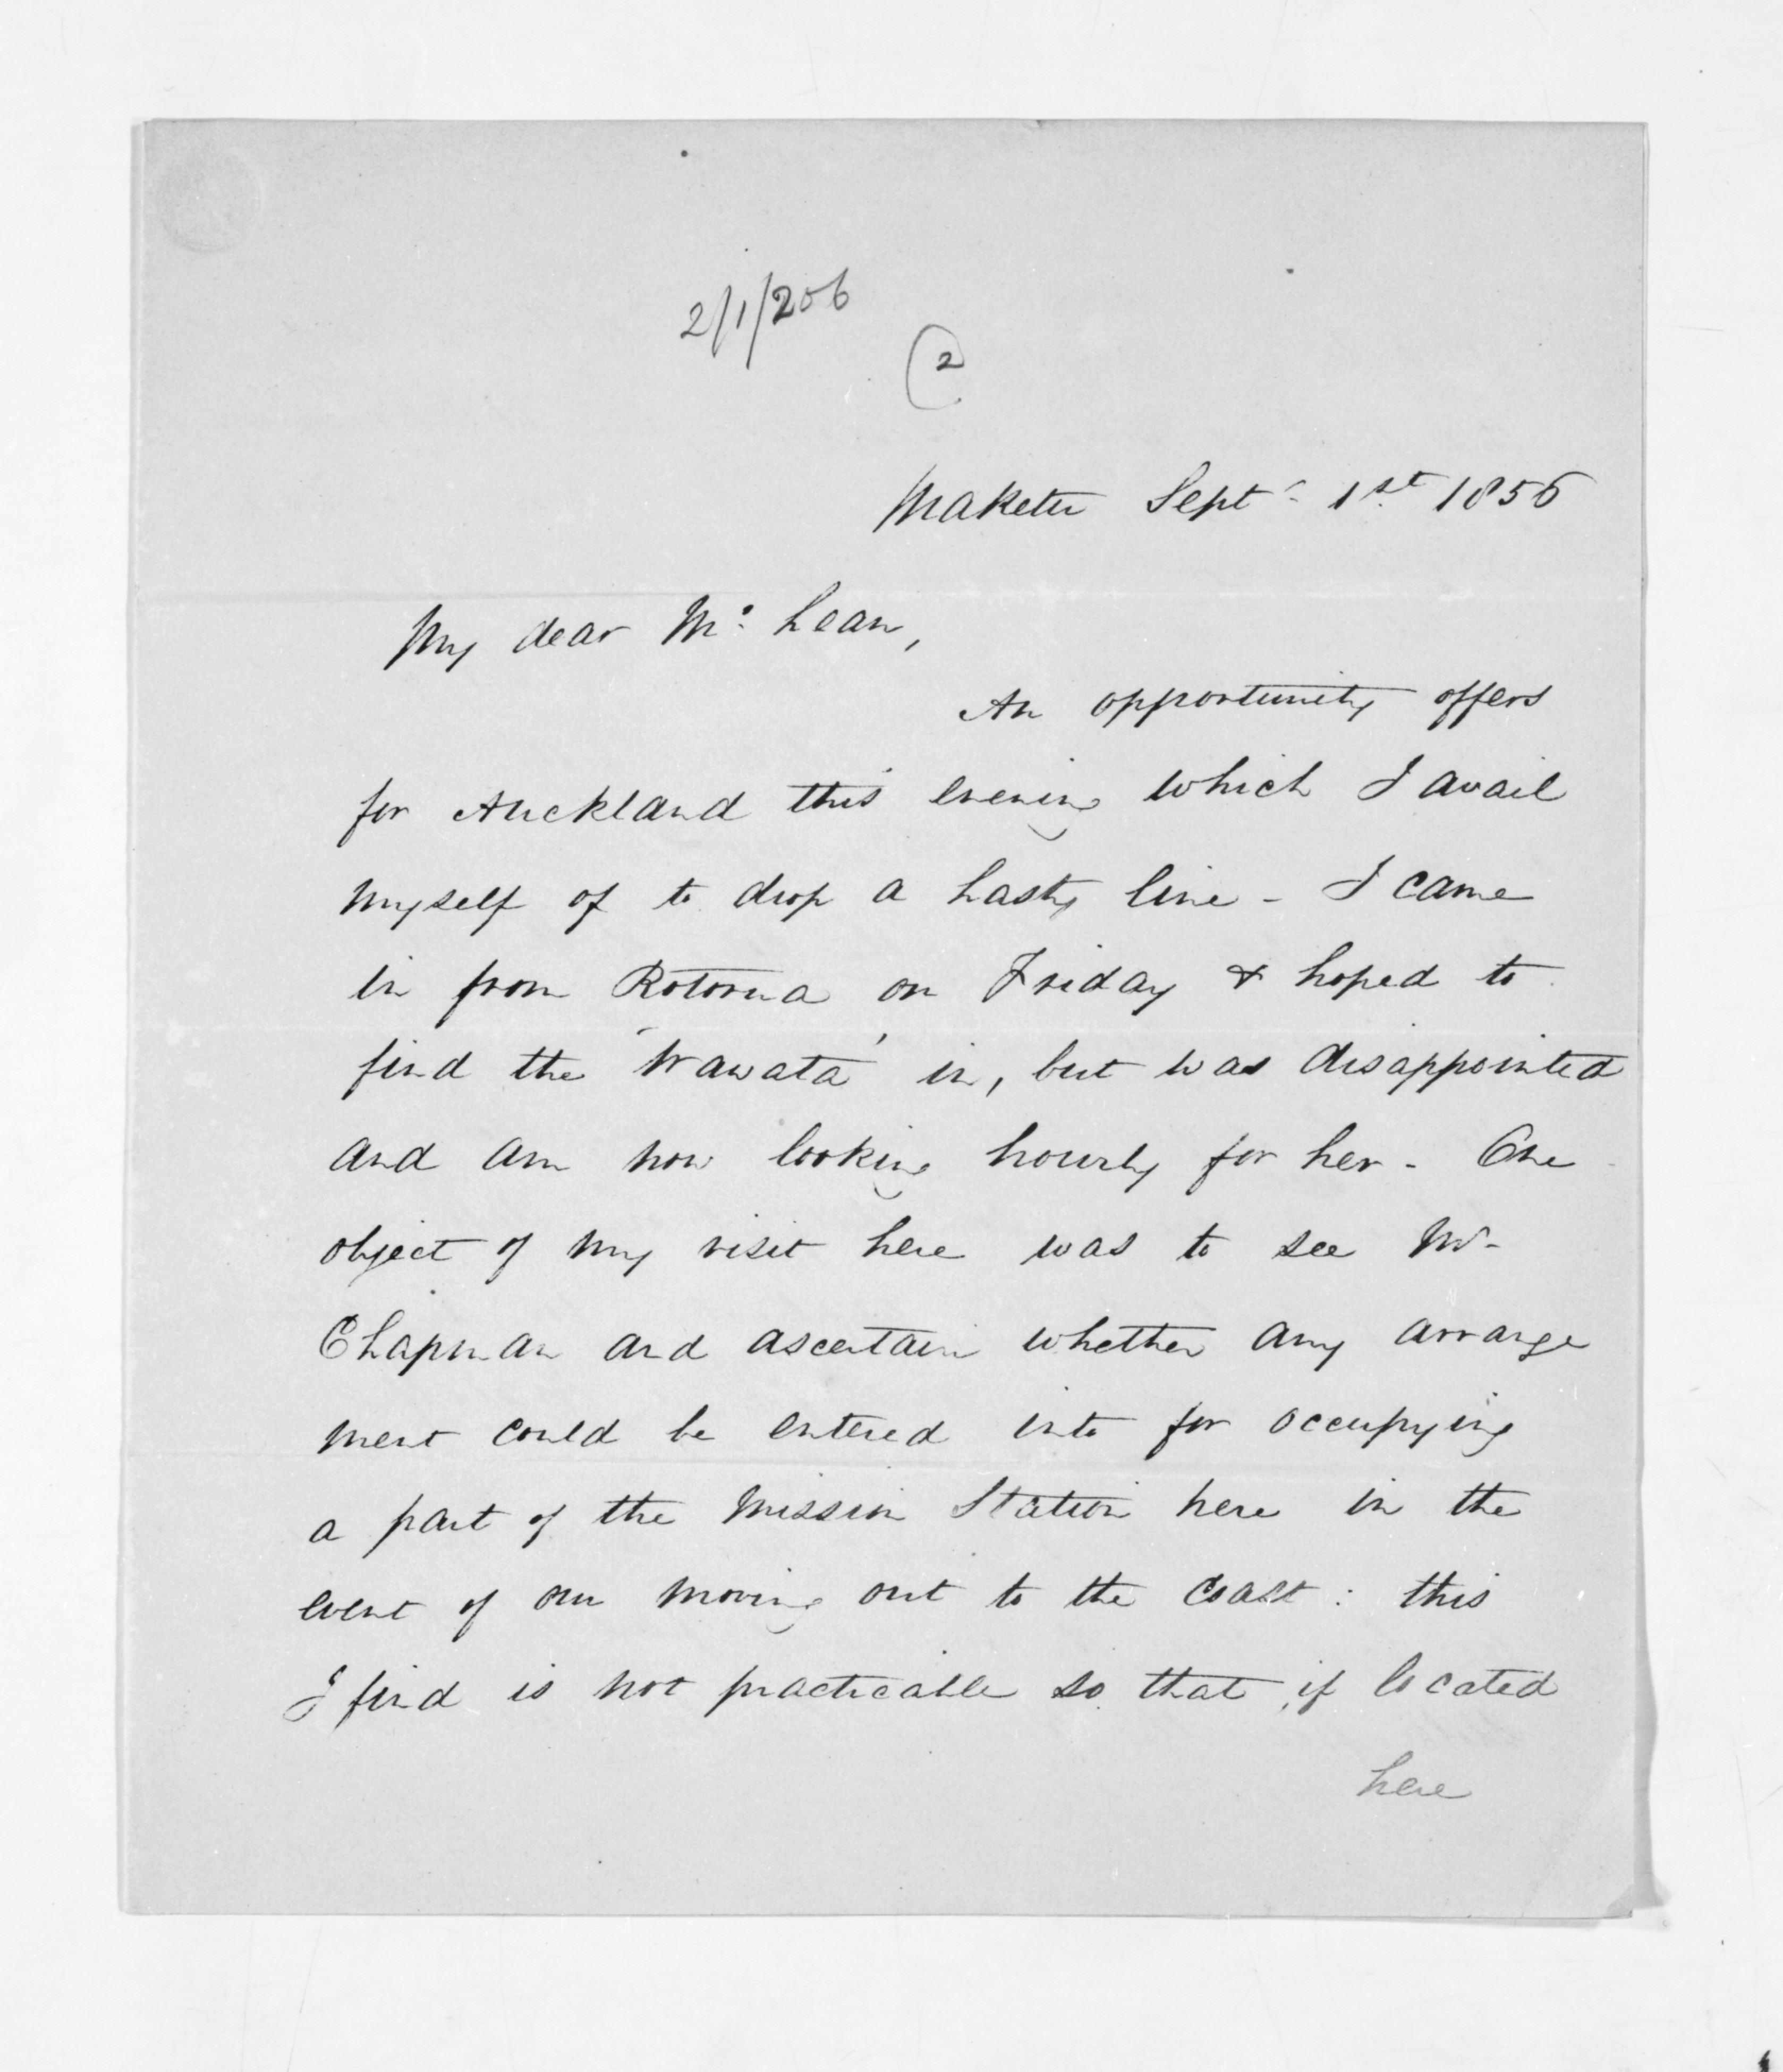 2/1/206
2
Maketu Septr 1st 1856
My dear Mc Lean,
An opportunity offers
for Auckland this evening which I avail
myself of to drop a hasty line - I came
in from Rotorua on Friday & hoped to
find the 'Wawata' in, but was disappointed
and am now looking hourly for her - One
object of my visit here was to see Mr
Chapman and ascertain whether any arrange
ment could be entered into for occupying
a part of the Mission Station here in the
event of our moving out to the coast : this
I find is not practicable so that, if located
here